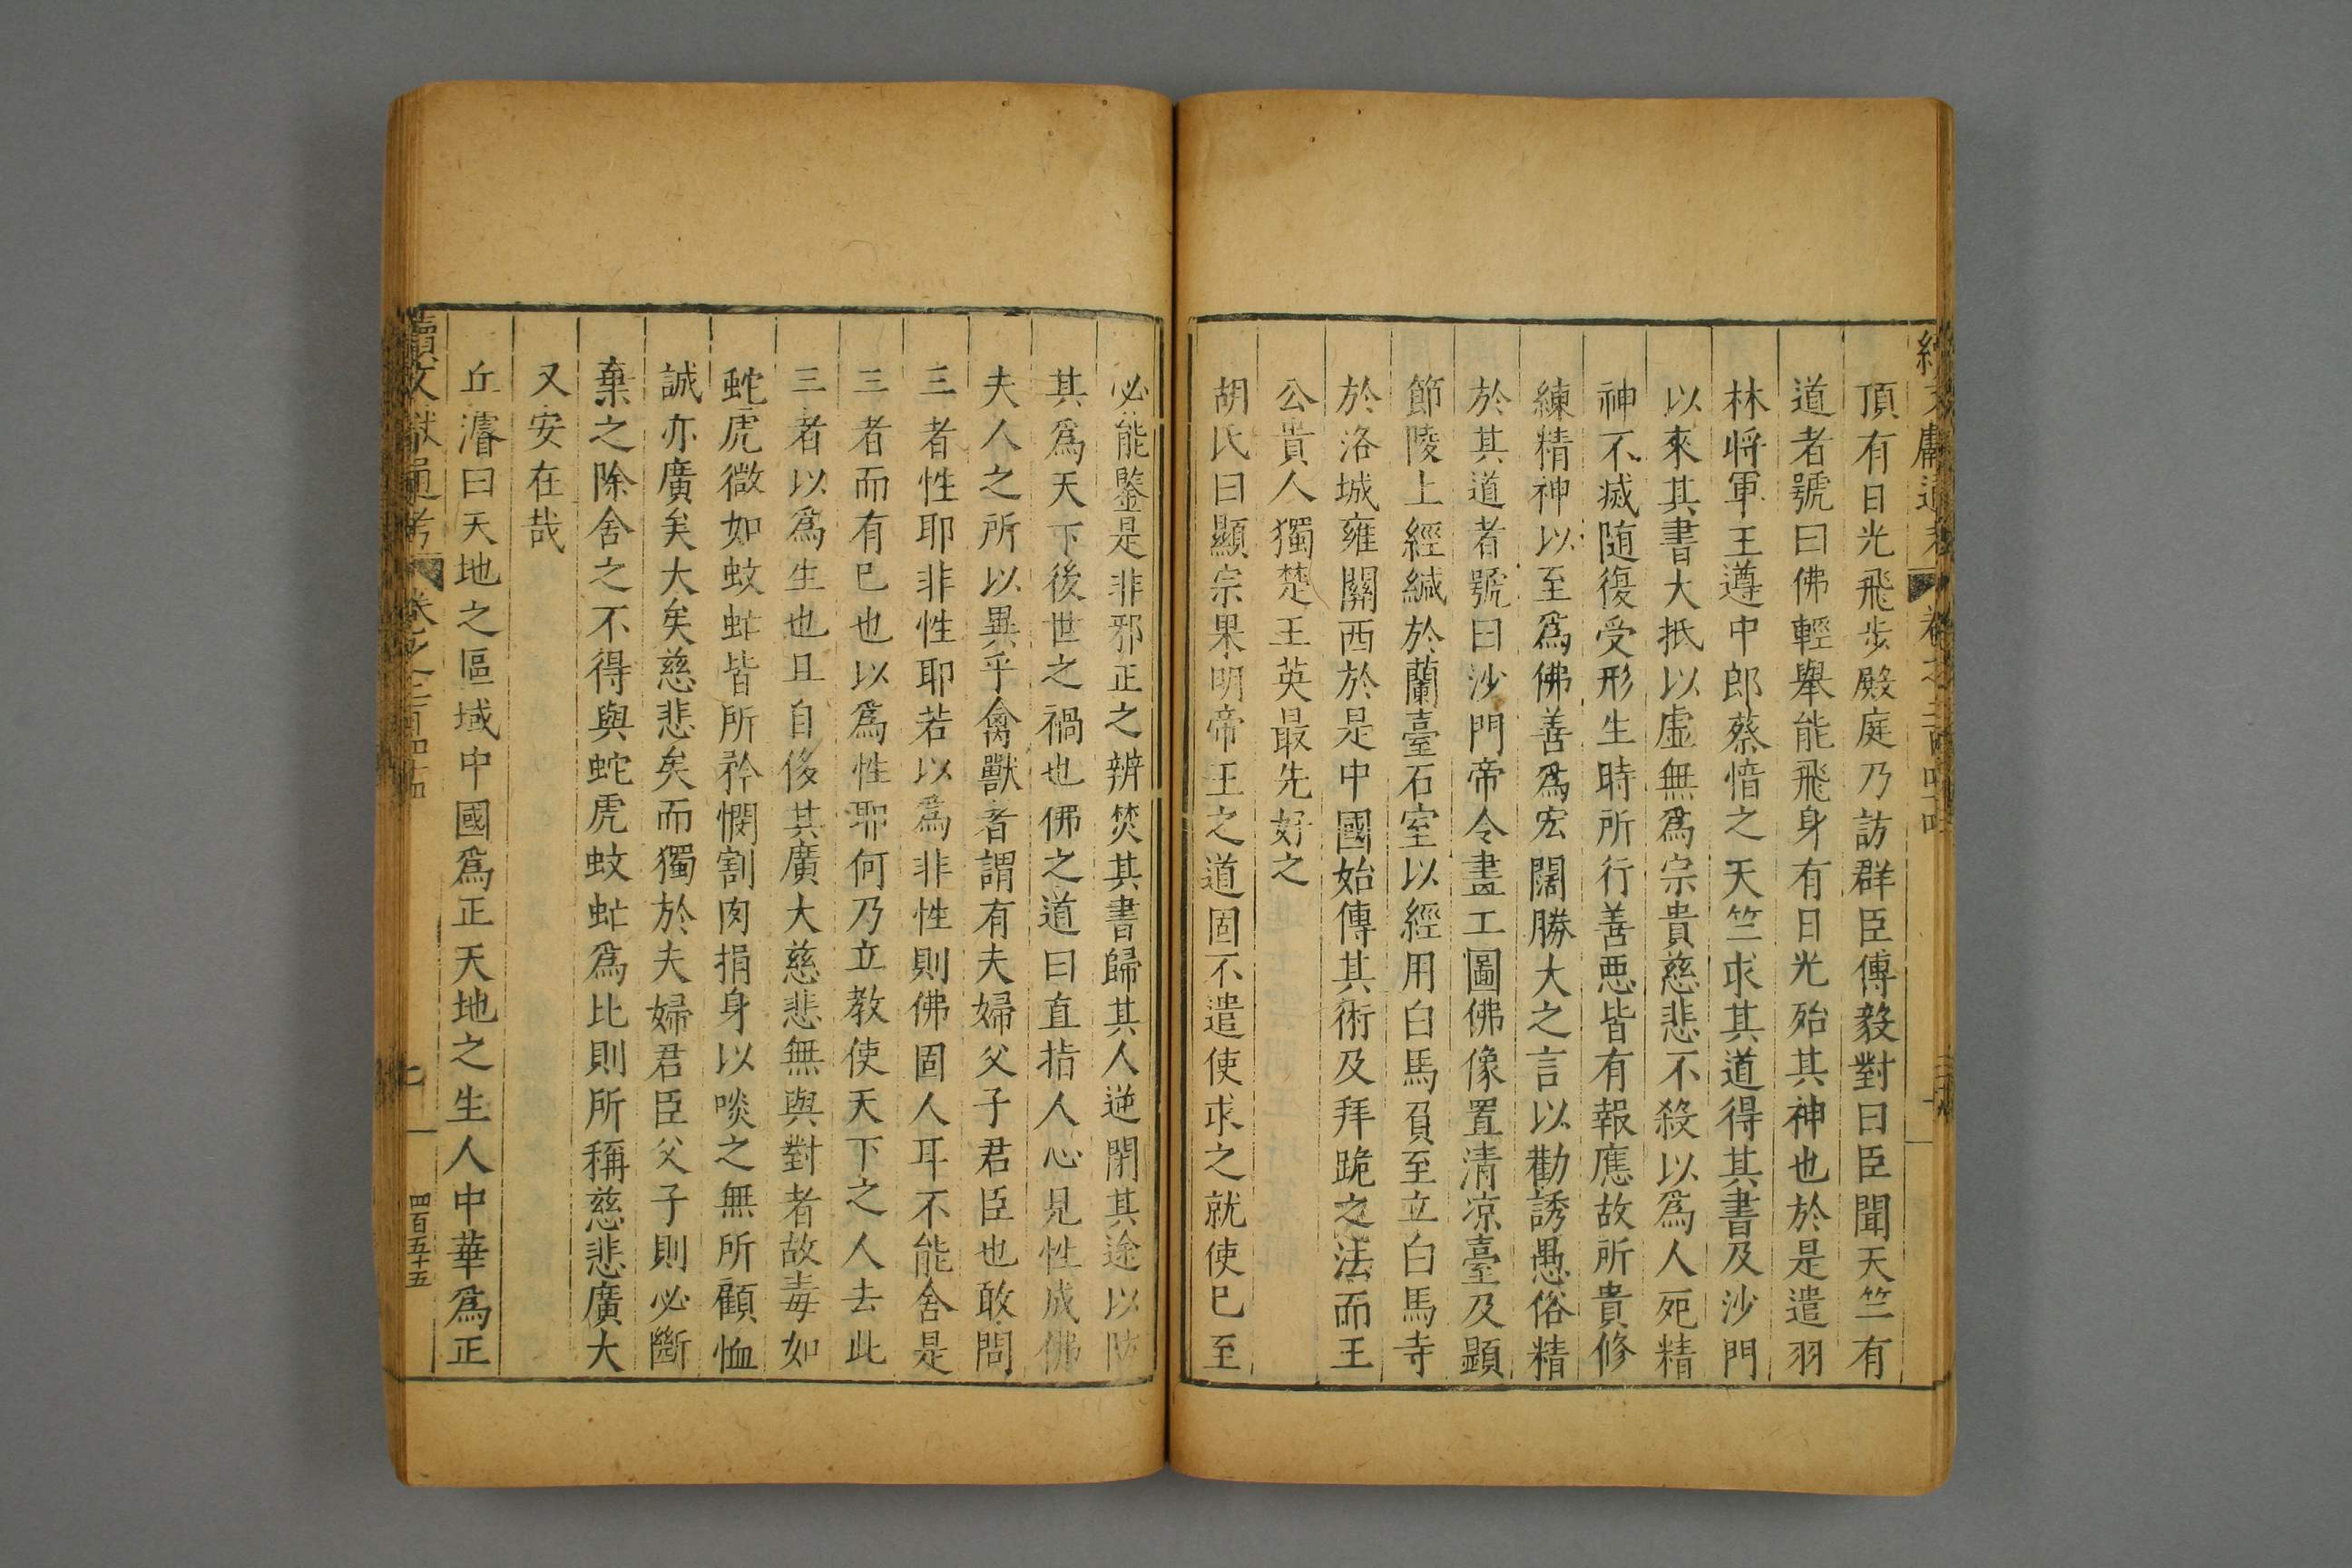 頂有日光飛步殿庭乃訪群臣傅毅對曰臣聞天竺有
道者號曰佛輕舉能飛身有日光殆其神也於是遣羽
林將軍王遵中郎蔡愔之天竺求其道得其書及沙門
以來其書大抵以虛無爲宗貴慈悲不殺以爲人死精
神不滅随復受形生時所行善悪皆有報應故所貴修
練精神以至爲佛善爲宏闊勝大之言以勸誘愚俗精
於其道者號曰沙門帝令畫工圖佛像置清凉臺及顕
節陵上經緘於蘭臺石室以經用白馬負至立白馬寺
於洛城雍關西於是中國始傳其術及拜跪之法而王
公貴人獨楚王英最先好之
胡氏曰顯宗果明帝王之道固不遣使求之就使已至
必能鑒是非邪正之辨焚其書歸其人逆閉其途以防
其爲天下後世之禍也佛之道曰直指人心見性成佛
夫人之所以異乎禽獸者謂有夫婦父子君臣也敢問
三者性耶非性耶若以爲非性則佛固人耳不能舍是
三者而有已也以爲性耶何乃立教使天下之人去此
三者以爲生也且自侈其廣大慈悲無與對者故毒如
蛇虎微如蚊虻皆所矜憫割肉捐身以啖之無所顧恤
誠亦廣矣大矣慈悲矣而獨於夫婦君臣父子則必斷
棄之除舍之不得與蛇虎蚊虻爲比則所稱慈悲廣大
又安在哉
丘濬曰天地之區域中國爲正天地之生人中華爲正
續文獻通考 卷之二百四十四
四百五十五